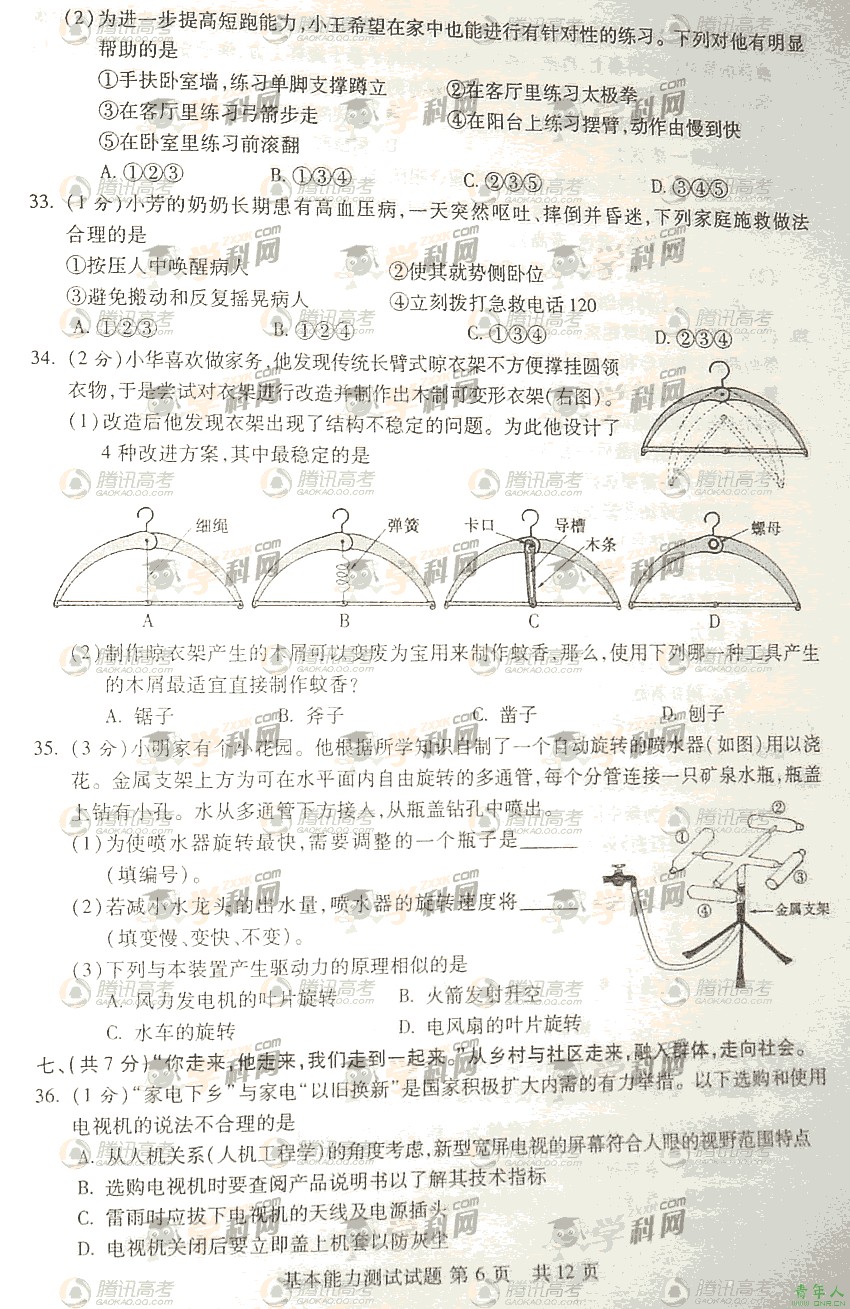 (2)为进一步提高短跑能力,小王希望在家中也能进行有针对性的练习。下列对他有明显
帮助的是
①手扶卧室墙,练习单脚支撑蹲立 ②在客厅里练习太极拳
③在客厅里练习弓箭步走 ④在阳台上练习摆臂,动作由慢到快
⑤在卧室里练习前滚翻
A. ①②③ B. ①③④ C. ②③⑤ D. ③④⑤
33. (1分)小芳的奶奶长期患有高血压病,一天突然呕吐、摔倒并昏迷,下列家庭施救做法
合理的是
①按压人中唤醒病人 ②使其就势侧卧位
③避免搬动和反复摇晃病人 ④立刻拨打急救电话120
A. ①②③ B. ①②④ C. ①③④ D. ②③④
34. (2分)小华喜欢做家务,他发现传统长臂式晾衣架不方便撑挂圆领
衣物,于是尝试对衣架进行改造并制作出木制可变形衣架(右图)。
(1)改造后他发现衣架出现了结构不稳定的问题。为此他设计了
4种改进方案,其中最稳定的是
细绳 弹簧 卡口 导槽 木条 螺母
A B C D
(2)制作晾衣架产生的木屑可以变废为宝用来制作蚊香。那么,使用下列哪一种工具产生
的木屑最适宜直接制作蚊香?
A. 锯子 B. 斧子 C. 凿子 D. 刨子
35. (3分)小明家有个小花园。他根据所学知识自制了一个自动旋转的喷水器(如图)用以浇
花。金属支架上方为可在水平面内自由旋转的多通管,每个分管连接一只矿泉水瓶,瓶盖
上钻有小孔。水从多通管下方接入,从瓶盖钻孔中喷出。
(1)为使喷水器旋转最快,需要调整的一个瓶子是______
(填编号)。
(2)若减小水龙头的出水量,喷水器的旋转速度将______
(填变慢、变快、不变)。
① ② ③ ④ 金属支架
(3)下列与本装置产生驱动力的原理相似的是
A. 风力发电机的叶片旋转 B. 火箭发射升空
C. 水车的旋转 D. 电风扇的叶片旋转
七、(共7分)“你走来,他走来,我们走到一起来。”从乡村与社区走来,融入群体,走向社会。
36. (1分)“家电下乡”与家电“以旧换新”是国家积极扩大内需的有力举措。以下选购和使用
电视机的说法不合理的是
A. 从人机关系(人机工程学)的角度考虑,新型宽屏电视的屏幕符合人眼的视野范围特点
B. 选购电视机时要查阅产品说明书以了解其技术指标
C. 雷雨时应拔下电视机的天线及电源插头
D. 电视机关闭后要立即盖上机套以防灰尘
基本能力测试试题 第6页 共12页
腾讯高考
GAOKAO.QQ.COM
学科网
ZXXK.COM
青年人
WWW.QNR.CN